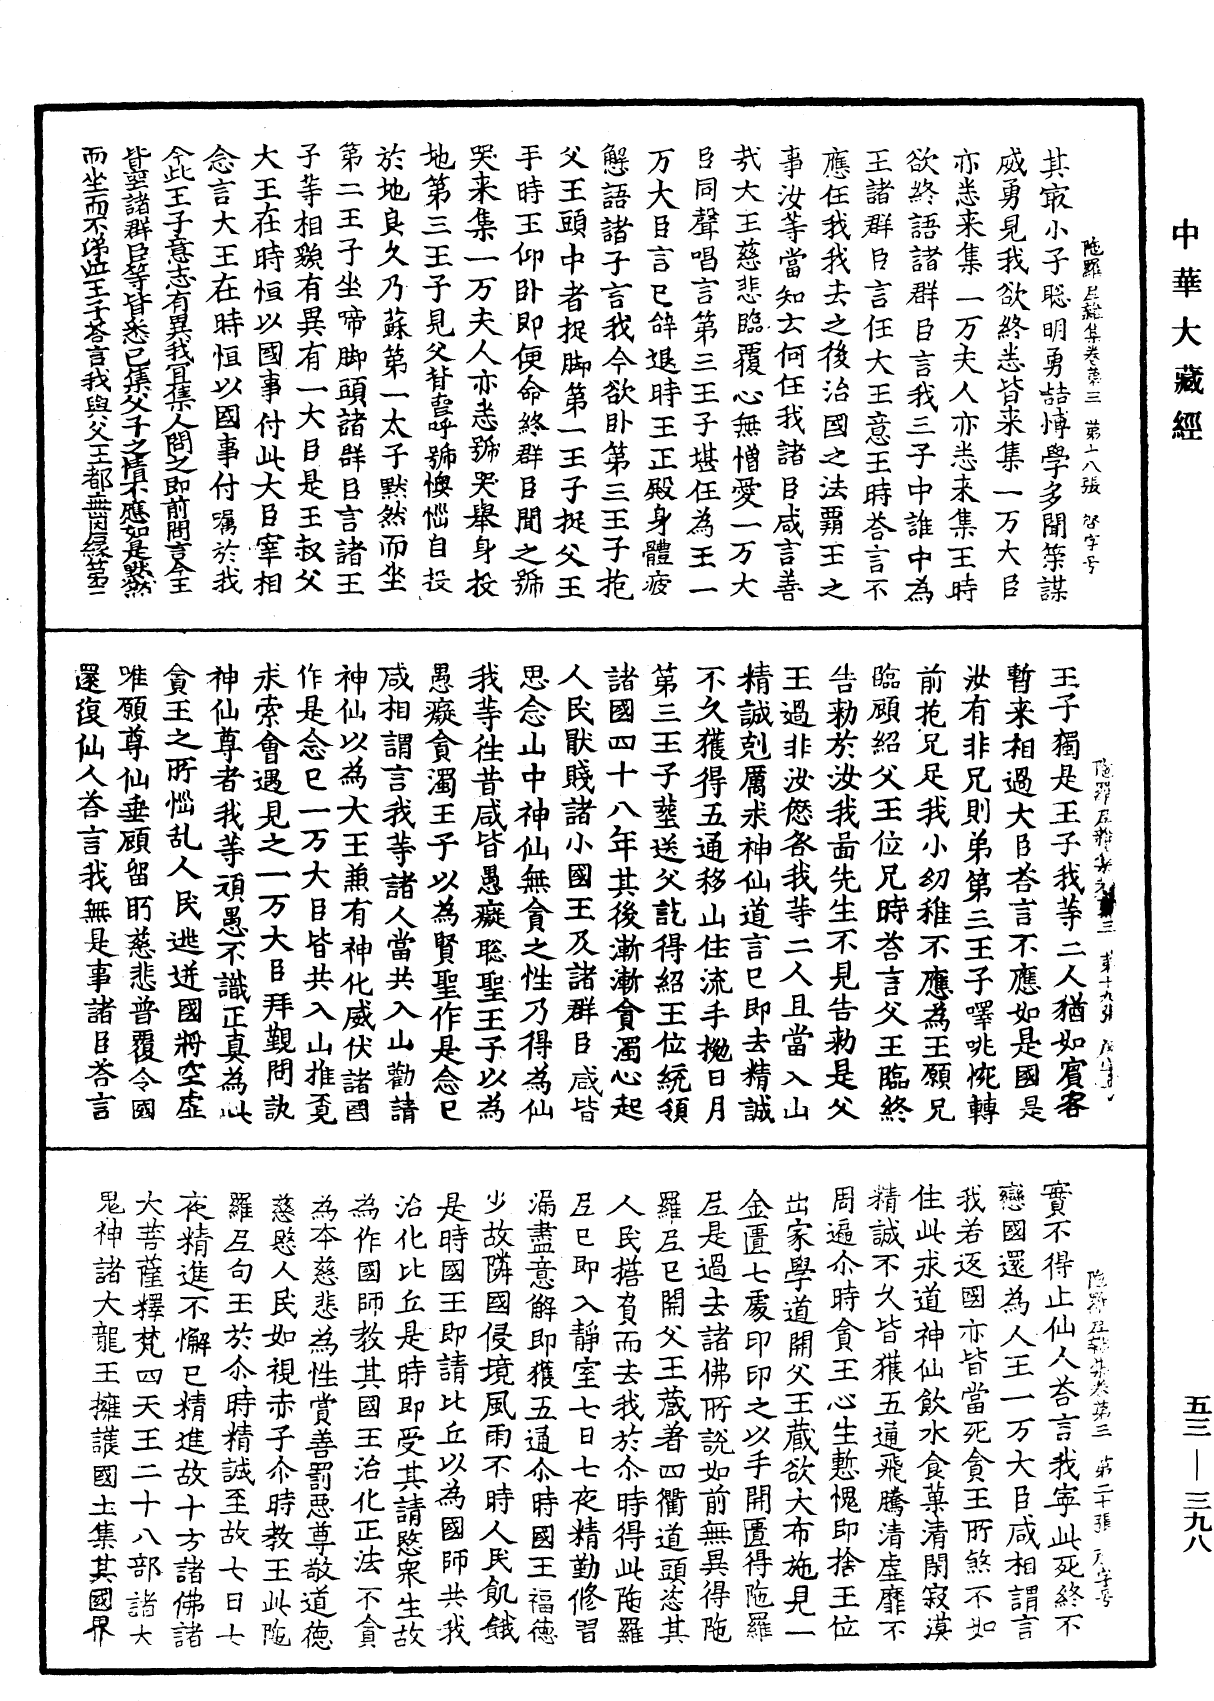 中華大藏經
陁羅尼雜集卷第三　第十八張　㐌字号
其㝡小子聡明勇喆愽學多聞筞謀
威勇見我欲終㤪皆来集一万大臣
亦㤪来集一万夫人亦㤪来集王時
欲終語諸群臣言我三子中誰中為
王諸群臣言任大王意王時荅言不
應任我我去之後治國之法覇王之
事汝等當知云何任我諸臣咸言善
㢤大王慈悲臨覆心無憎愛一万大
臣同聲唱言第三王子堪任為王一
万大臣言已辝退時王正殿身體疲
懈語諸子言我今欲卧第三王子抱
父王頭中者捉脚第一王子捉父王
手時王仰卧即便命終群臣聞之號
哭来集一万夫人亦㤪號哭舉身投
地第三王子見父背䘮呼號懊惱自投
於地良久乃蘇第一太子默然而坐
第二王子坐啼脚頭諸群臣言諸王
子等相䫉有異有一大臣是王叔父
大王在時恒以國事付此大臣宰相
念言大王在時恒以國事付囑於我
今此王子意志有異我冝集人問之即前問言今王
皆䘮諸群臣等皆悉已集父子之情不應如是默然
而坐而不涕泣王子荅言我與父王都無因縁第三
陁羅尼雜集卷第三　第十九張
王子獨是王子我等二人猶如賔客
暫来相過大臣荅言不應如是國是
汝有非兄則弟第三王子嘷咷惋轉
前抱兄足我小㓜稚不應為王願兄
臨顧紹父王位兄時荅言父王臨終
告勑於汝我畐先生不見告勑是父
王過非汝𠍴咎我等二人且當入山
精誠剋厲求神仙道言已即去精誠
不久獲得五通移山住流手捴日月
第三王子塟送父訖得紹王位統領
諸國四十八年其後漸漸貪濁心起
人民猒賤諸小國王及諸群臣咸皆
思念山中神仙無貪之性乃得為仙
我等往昔咸皆愚癡聡聖王子以為
愚癡貪濁王子以為賢聖作是念已
咸相謂言我等諸人當共入山勸請
神仙以為大王兼有神化威伏諸國
作是念已一万大臣皆共入山推覓
求索會遇見之一万大臣拜覲問訊
神仙尊者我等頑愚不識正真為此
貪王之所惱乱人民逃迸國將空虚
唯願尊仙垂顧留眄慈悲普覆令國
還復仙人荅言我無是事諸臣荅言
陁羅尼雜集卷第三　第二十張　㐌字号
實不得止仙人荅言我寧此死終不
戀國還為人王一万大臣咸相謂言
我若返國亦皆當死貪王所煞不如
住此求道神仙飲水食菓清閑寂漠
精誠不久皆獲五通飛騰清虚靡不
周遍尒時貪王心生慙愧即捨王位
出家學道開父王蔵欲大布施見一
金匱七處印印之以手開匱得陁羅
尼是過去諸佛所說如前無異得陁
羅尼已開父王蔵著四衢道頭恣其
人民搭負而去我於尒時得此陁羅
尼已即入靜室七日七夜精勤修習
漏盡意解即獲五通尒時國王福德
少故隣國侵境風雨不時人民飢餓
是時國王即請比丘以為國師共我
治化比丘是時即受其請愍衆生故
為作國師教其國王治化正法不貪
為本慈悲為性賞善罰惡尊敬道德
慈愍人民如視赤子尒時教王此陁
羅尼句王於尒時精誠至故七日七
夜精進不懈已精進故十方諸佛諸
大菩薩釋梵四天王二十八部諸大
鬼神諸大龍王擁護國土集其國界
五三—三九八